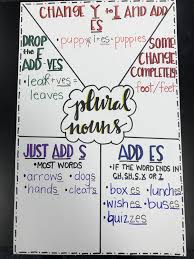 CHANGE Y TO I AND ADD
ES
• puppy i+es → puppies
DROP
THE F
ADD -VES
• leaf+ves =
leaves
SOME
CHANGE
COMPLETELY
foot/feet
plural
nouns
JUST ADD S
• MOST WORDS
• arrows • dogs
• hands • cleats
ADD ES
• IF THE WORD ENDS IN
CH, SH, S, X OR Z
• boxes • lunches
• wishes • buses
• quizzes